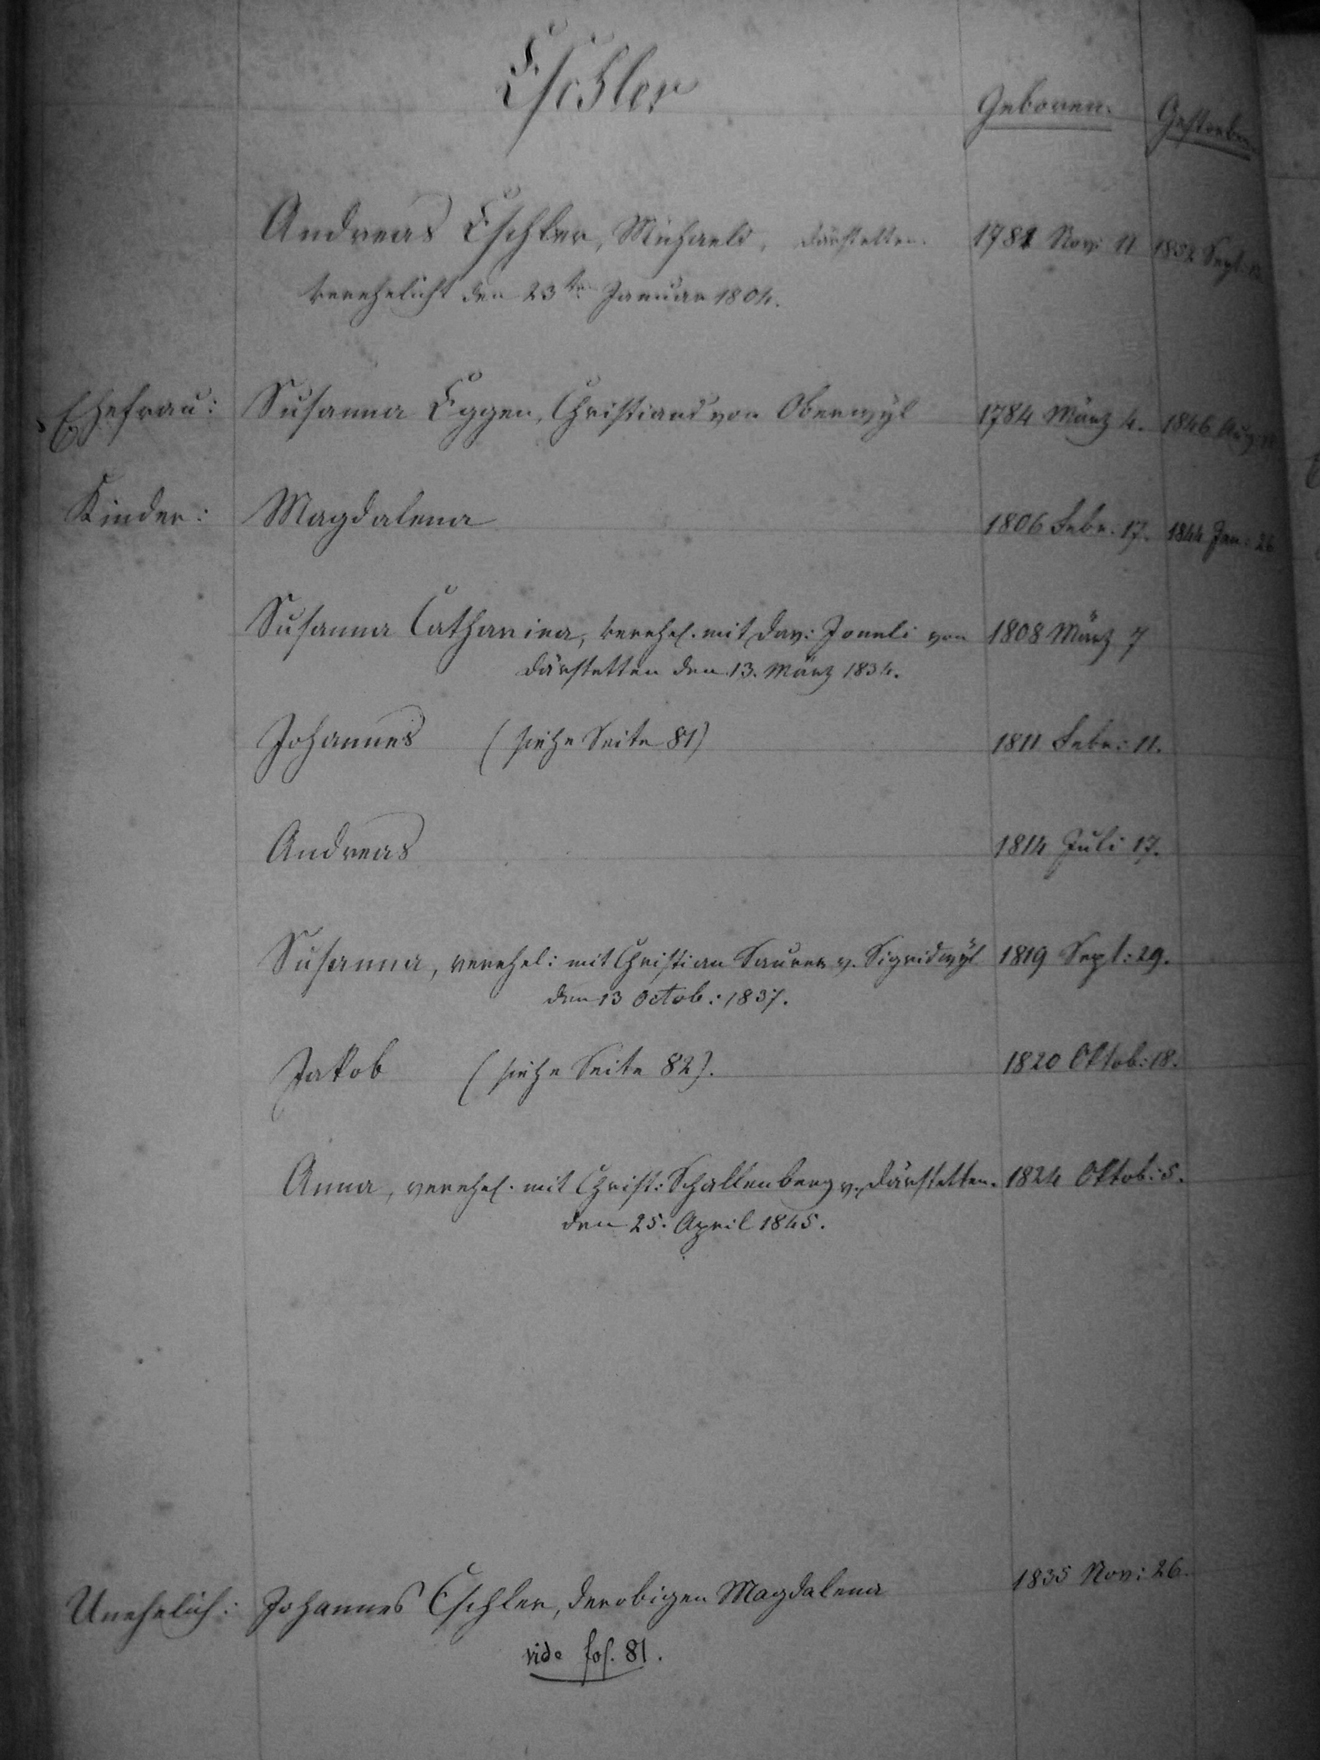 Eschler
Geboren. Gestorben
Andreas Eschler, Michaels, Därstetten. 1781 Nov: 11 1852 Sept:
verehelicht den 23ten Januar 1804.
Ehefrau: Susanna Eggen, Christians von Oberwyl 1784 März 4. 1846 Aug:
Kinder: Magdalena 1806 Febr. 17. 1844 Jan: 26
Susanna Catharina, verehel. mit Dav: Jonneli von 1808 März 7
Därstetten den 13. März 1834.
Johannes (siehe Seite 81) 1811 Febr: 11.
Andreas 1814 Juli 17.
Susanna, verehel: mit Christian Saurer v. Sigriswyl 1819 Sept: 29.
den 13 Octob: 1837.
Jakob (siehe Seite 82). 1820 Oktob: 18.
Anna, verehel. mit Christ: Schallenberg v. Därstetten. 1824 Oktob: 5.
den 25. April 1845.
Unehelich: Johannes Eschler, der obigen Magdalena 1835 Nov: 26.
vide fol. 81.